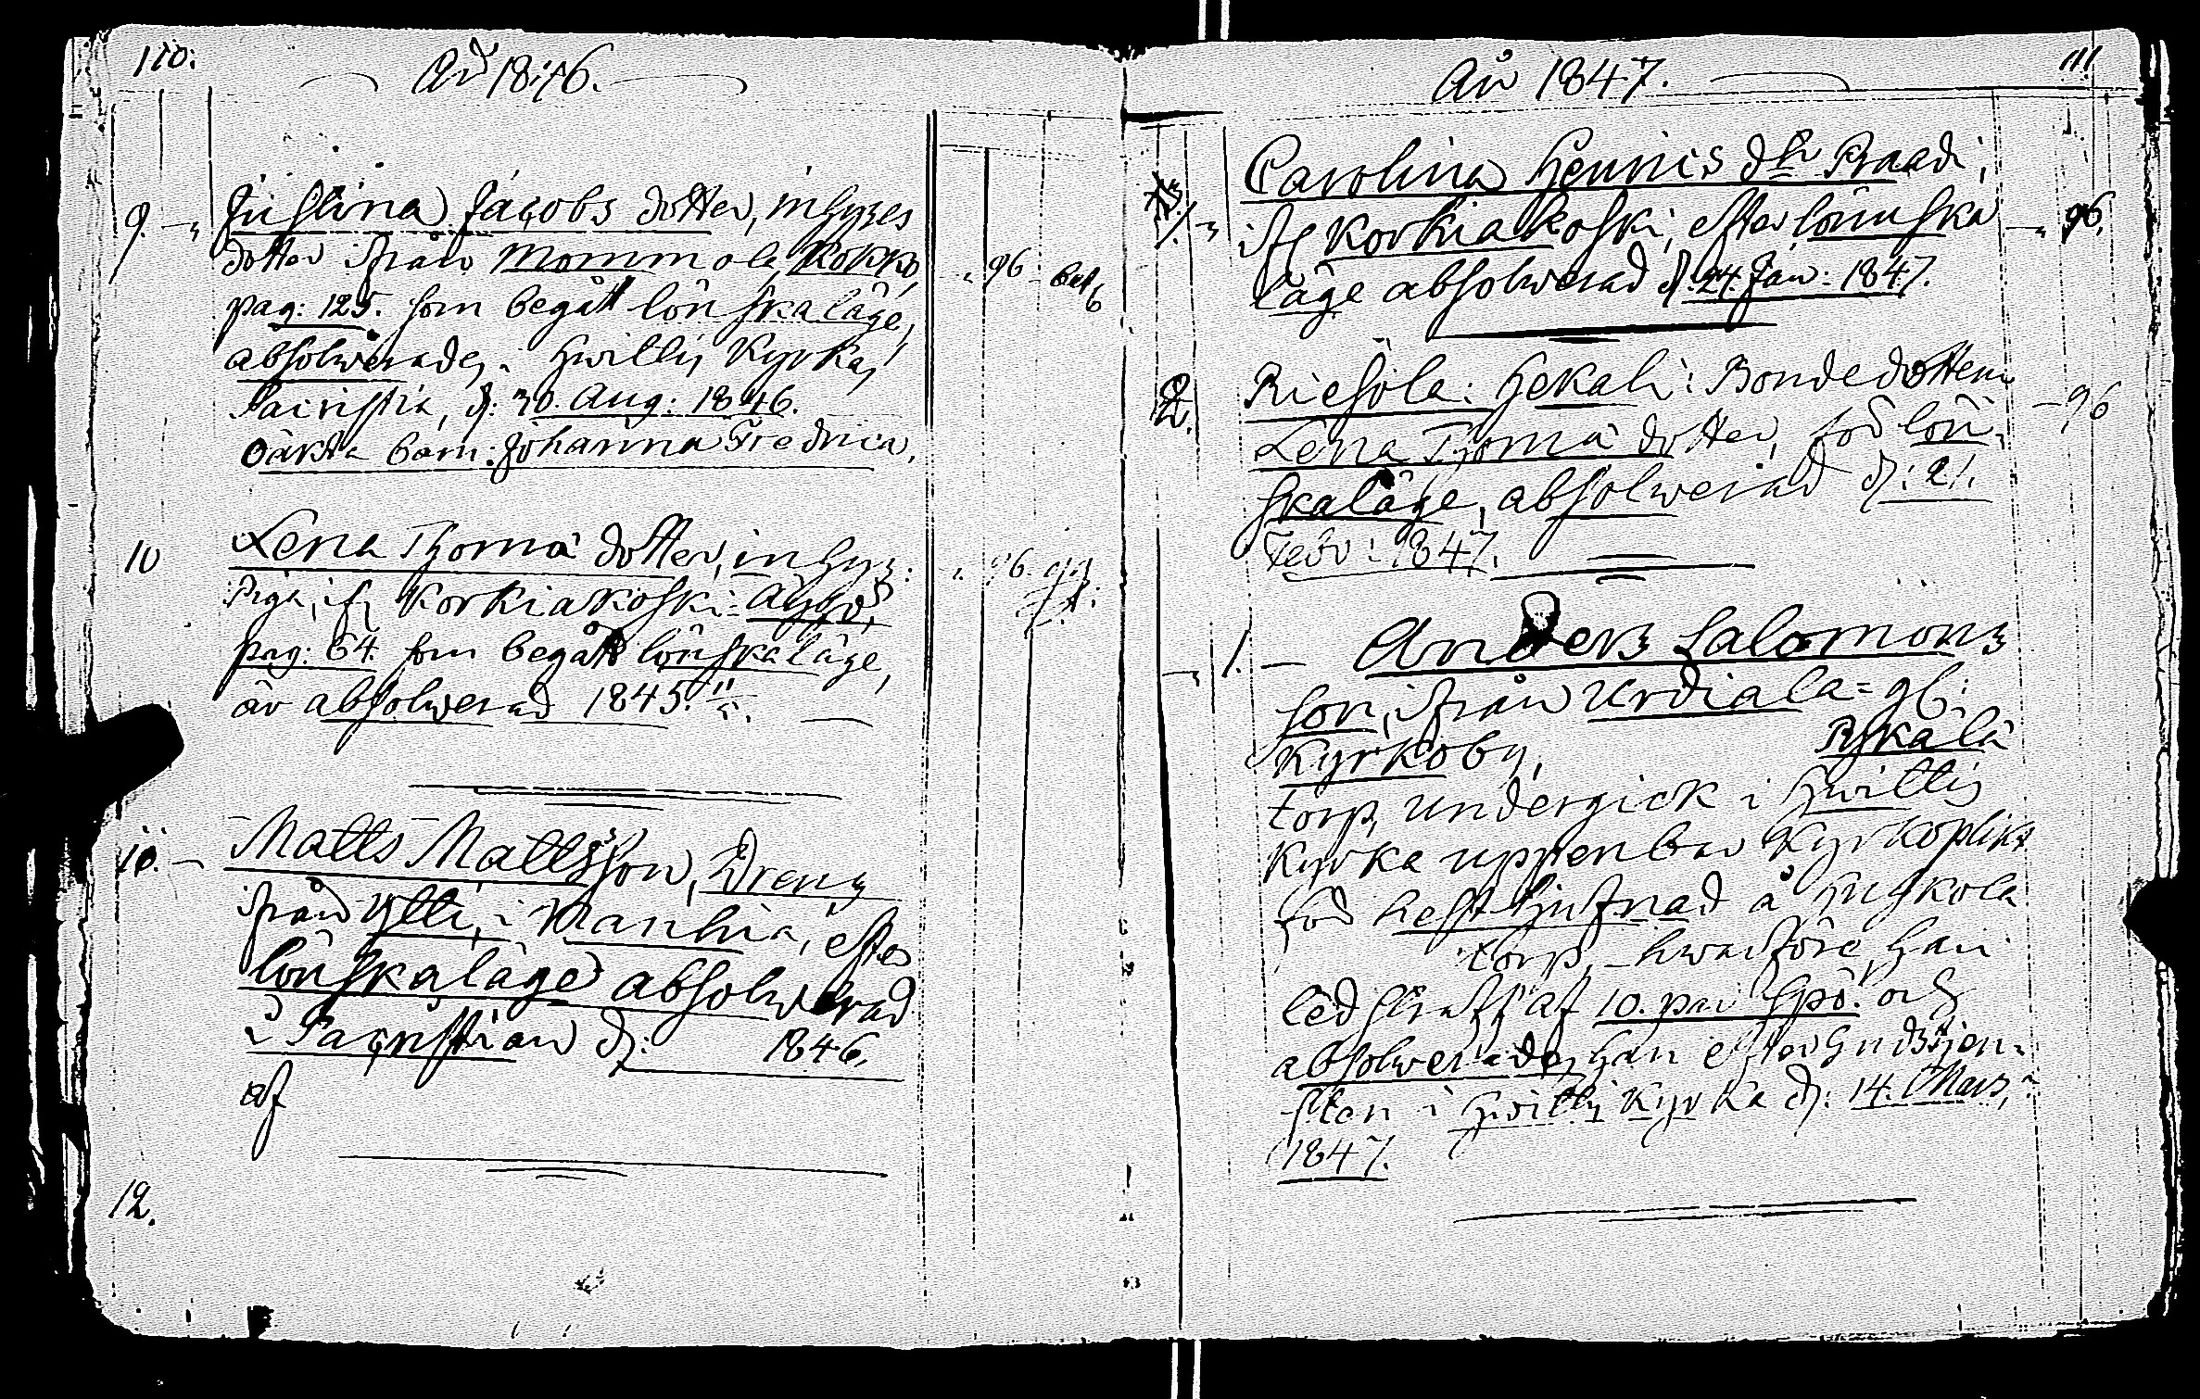 110.
År 1846.
9. Justina Jacobs dotter, inhyses
dotter ifrån Mommola, Kokko,
pag: 125. som begått lönskaläge,
absolverades i Hvittis Kyrkas
Sacristia, d: 30 Aug: 1846.
oäkta barn: Johanna Fredrica.
96
10 Lena Thomæ dotter, inhys:
Piga, if: Korkiakoski
pag: 64. som begått lönskaläge,
är absolverad 1845.
96
Matts Mattsson, Dreng
ifrån Ylli, i Manhia, efter
lönskaläge absolverad
i Sacristian d: 1846.
af
12.
111
År 1847.
1. Carolina Henrics dr Raadi,
if Korkiakoski, efter lönnska
läge absolverad d: 24. Jan: 1847.
96.
2. Riesola: Hekali: Bondedottern
Lena Thomæ dotter, för lön-
skaläge, absolverad d: 21.
Febr: 1847.
96
1. Anders Salomons
son, ifrån Urdiala=
Kyrkoby,
torp, undergick i Hvittis
Kyrka uppenbar Kyrkoplikt
för hest tjufnad å
torp, hwarföre han
led straff af 10. par Spö. och
absolverades han efter Gudstjen-
sten i Hvittis Kyrka d: 14. Mars,
1847.